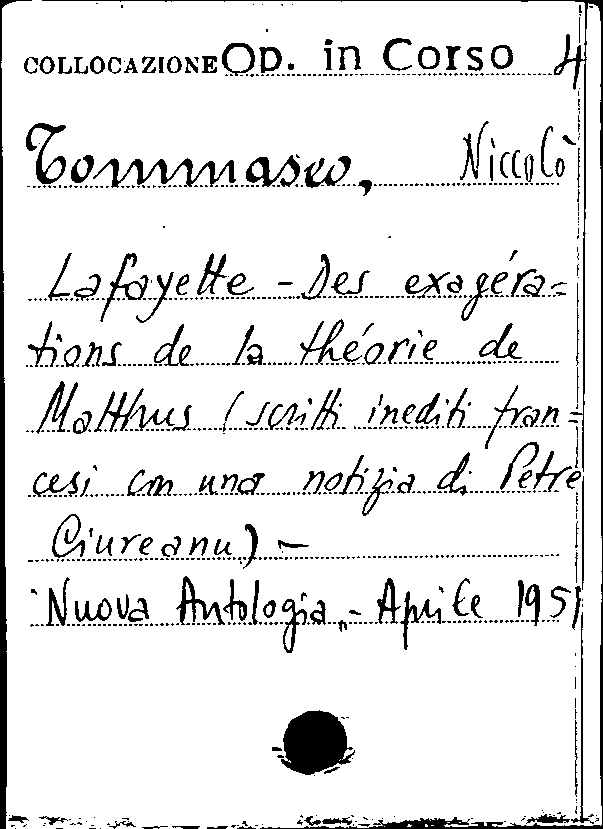 COLLOCAZIONE Op. in Corso 4
Tommaseo, Niccolò
Lafayette - Des exagéra=
tions de la théorie de
Matthus (scritti inediti fran=
cesi con una notizia di Petre
Ciureanu) -
"Nuova Antologia" - Aprile 1951